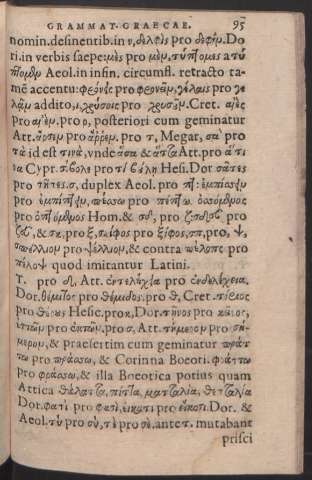 GRAMMAT. GRAECAE. 95
nomin. desinentib. in ν, δελφὶς pro δελφὶν. Do
ri. in verbis saepe: μὲς pro μὲν, τύπτομες a τύ
πτομεν Aeol. in infin. circumfl. retracto ta-
mē accentu: φρόνεις pro φρονᾶν, γέλαις pro γε
λᾶν addito, ι, χρύσοις pro χρυσοῦν. Cret. αἰὲς
pro αἰὲν. pro ρ, posteriori cum geminatur
Att. ἄρσεν pro ἄρρεν. pro τ, Megar, σὰ pro
τὰ id est τινὰ, vnde ἄσσα & ἄττα Att. pro ἅτι
να Cypr. pro Hesi. Dor σᾶτες
pro τῆτες. σ, duplex Aeol. pro πτ:
pro pro πέπτω. ὀσσόμενος
pro ὀπτόμενος Hom. & σδ, pro ζ: pro
& σκ, pro ξ, σκίφος pro ξίφος, σπ, pro, ψ,
σπέλλιον pro ψέλλιον, & contra ψέλοπς pro
πέλοψ quod imitantur Latini.
T. pro δ, Att. ἐντελέχεια pro ἐνδελέχεια,
Dor. θέμιτος pro θέμιδος. pro θ, Cret. τίεος
pro Hesic. pro κ, Dor. τῆνος pro κεῖνος,
pro pro σ, Att. τήμερον pro σή-
μερον, & praesertim cum geminatur πράτ
τω pro πράσσω, & Corinna Boeoti. φράττω
pro φράσσω, & illa Boeotica potius quam
Attica θάλαττα, πίττα, ματταλία, θετταλία
Dor. φατὶ pro φασὶ, εἴκατι pro εἴκοσι. Dor. &
Aeol. τὺ pro σὺ, τὲ pro σὲ. ante τ. mutabant
prisci